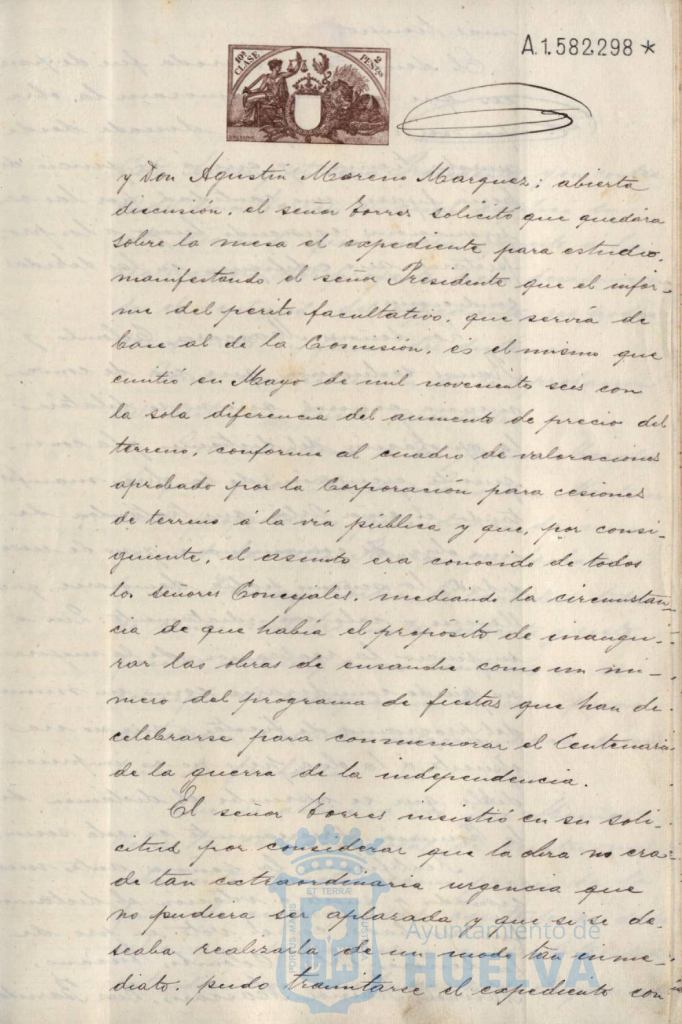 A.1.582.298 *
10ª CLASE 2 PESETAS
y Don Agustin Moreno Marquez; abierta
discusión, el señor Torres solicitó que quedára
sobre la mesa el expediente para estudio,
manifestando el señor Presidente que el infor-
me del perito facultativo, que servía de
base al de la Comisión, és el mismo que
emitió en Mayo de mil novecientos seis con
la sola diferencia del aumento de precio del
terreno, conforme al cuadro de valoraciones
aprobado por la Corporación para cesiones
de terreno á la vía pública y que, por consi-
guiente, el asunto era conocido de todos
los señores Concejales, mediando la circunstan-
cia de que había el propósito de inaugu-
rar las obras de ensanche como un nú-
mero del programa de fiestas que han de
celebrarse para conmemorar el Centenario
de la guerra de la independencia.
El señor Torres insistió en su soli-
citud por considerar que la obra no era
de tan extraordinaria urgencia que
no pudiera ser aplazada y que si se de-
seaba realizarla de un modo tan inme-
diato, pudo tramitarse el expediente con
Ayuntamiento de
HUELVA